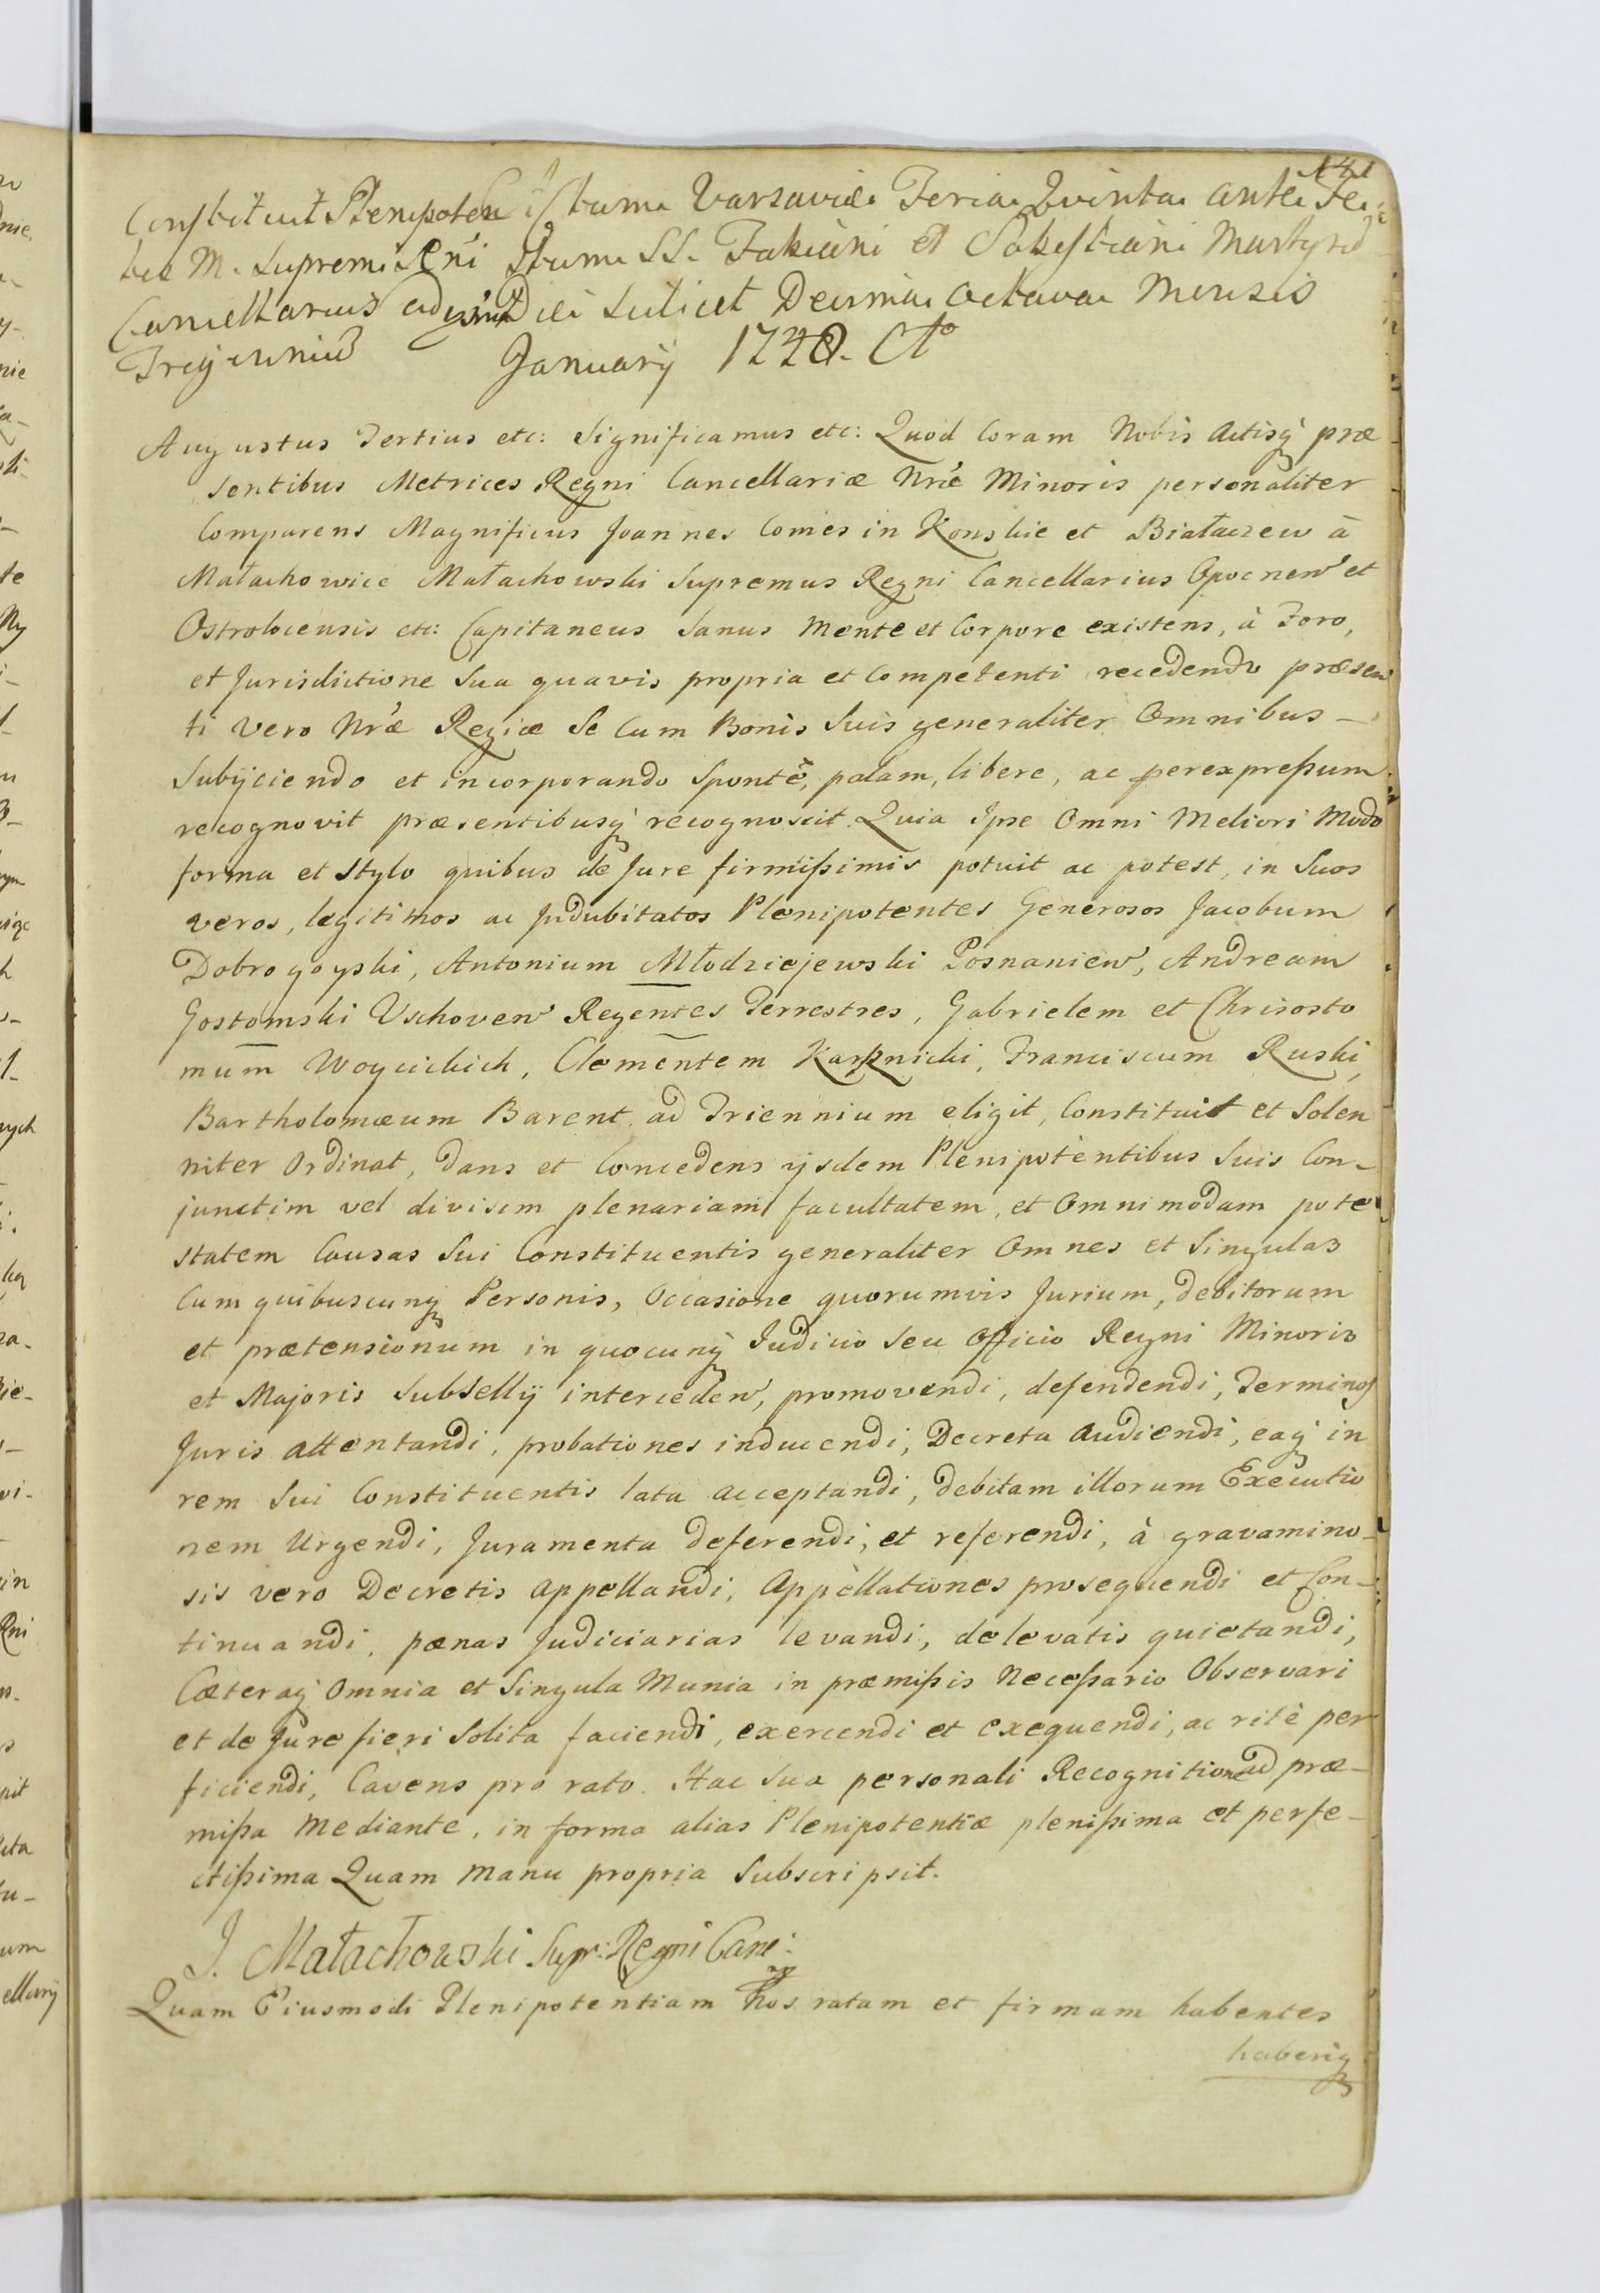 141
Constituit Plenipoten Actum Varsaviæ Feria Quinta ante Fe-
tes M. Supremi Rni Stum SS. Fabiani et Sebastiani Martyrũ
Cancellarius ad Die Scilicet Decima octava Mensis
Trijenniũ Januarij 1748. Ao
Augustus Tertius etc: Significamus etc: Quod Coram Nobis Actisq præ
sentibus Metrices Regni Cancellariæ Nræ Minoris personaliter
Comparens Magnificus Joannes Comes in Konskie et Białaczew à
Małachowice Małachowski Supremus Regni Cancellarius Opocnen et
Ostrolocensis etc: Capitaneus Sanus Mente et Corpore existens, à Foro,
et Jurisdictione Sua quavis propria et Competenti recedendo præsen
ti vero Nræ Regiæ Se Cum Bonis Suis generaliter Omnibus –
Subijciendo et incorporando Spontè, palam, libere, ac per expreßum
recognovit præsentibusq recognoscit. Quia Ipse Omni Meliori Modo
forma et Stylo quibus de Jure firmißimis potuit ac potest, in Suos
veros, legitimos ac Indubitatos Plenipotentes Generosos Jacobum
Dobrogoyski, Antonium Młodziejewski Posnanien, Andream
Gostomski Vschoven Regentes Terrestres, Gabrielem et Chrisosto
mum Woycickich, Clementem Karsznicki, Franciscum Ruski,
Bartholomæum Barent ad Triennium eligit, Constituit et Solen
niter Ordinat, Dans et Concedens ijsdem Plenipotentibus Suis Con-
junctim vel divisim plenariam facultatem, et Omnimodam pote
statem Causas Sui Constituentis generaliter Omnes et Singulas
Cum quibuscunq Personis, Occasione quorumvis Jurium, debitorum
et prætensionum in quocunq Judicio Seu Officio Regni Minoris
et Majoris Subsellij interceden, promovendi, defendendi, Terminos
Juris attentandi, probationes inducendi, Decreta Audiendi, eaq in
rem Sui Constituentis lata acceptandi, debitam illorum Executio
nem Urgendi, Juramenta deferendi, et referendi, à gravamino-
sis vero Decretis appellandi, Appellationes prosequendi et Con-
tinuandi, pænas Judiciarias levandi, de levatis quietandi,
Cæteraq Omnia et Singula Munia in præmißis Neceßario Observari
et de Jure fieri Solita faciendi, exercendi et exequendi, ac ritè per
ficiendi, Cavens pro rato. Hac Sua personali Recognitione ad præ-
mißa Mediante, in forma alias Plenipotentiæ plenißima et perfe-
ctißima Quam Manu propria Subscripsit.
J. Małachowski Supr: Regni Canc:
Quam Eiusmodi Plenipotentiam Nos ratam et firmam habentes
haberiq